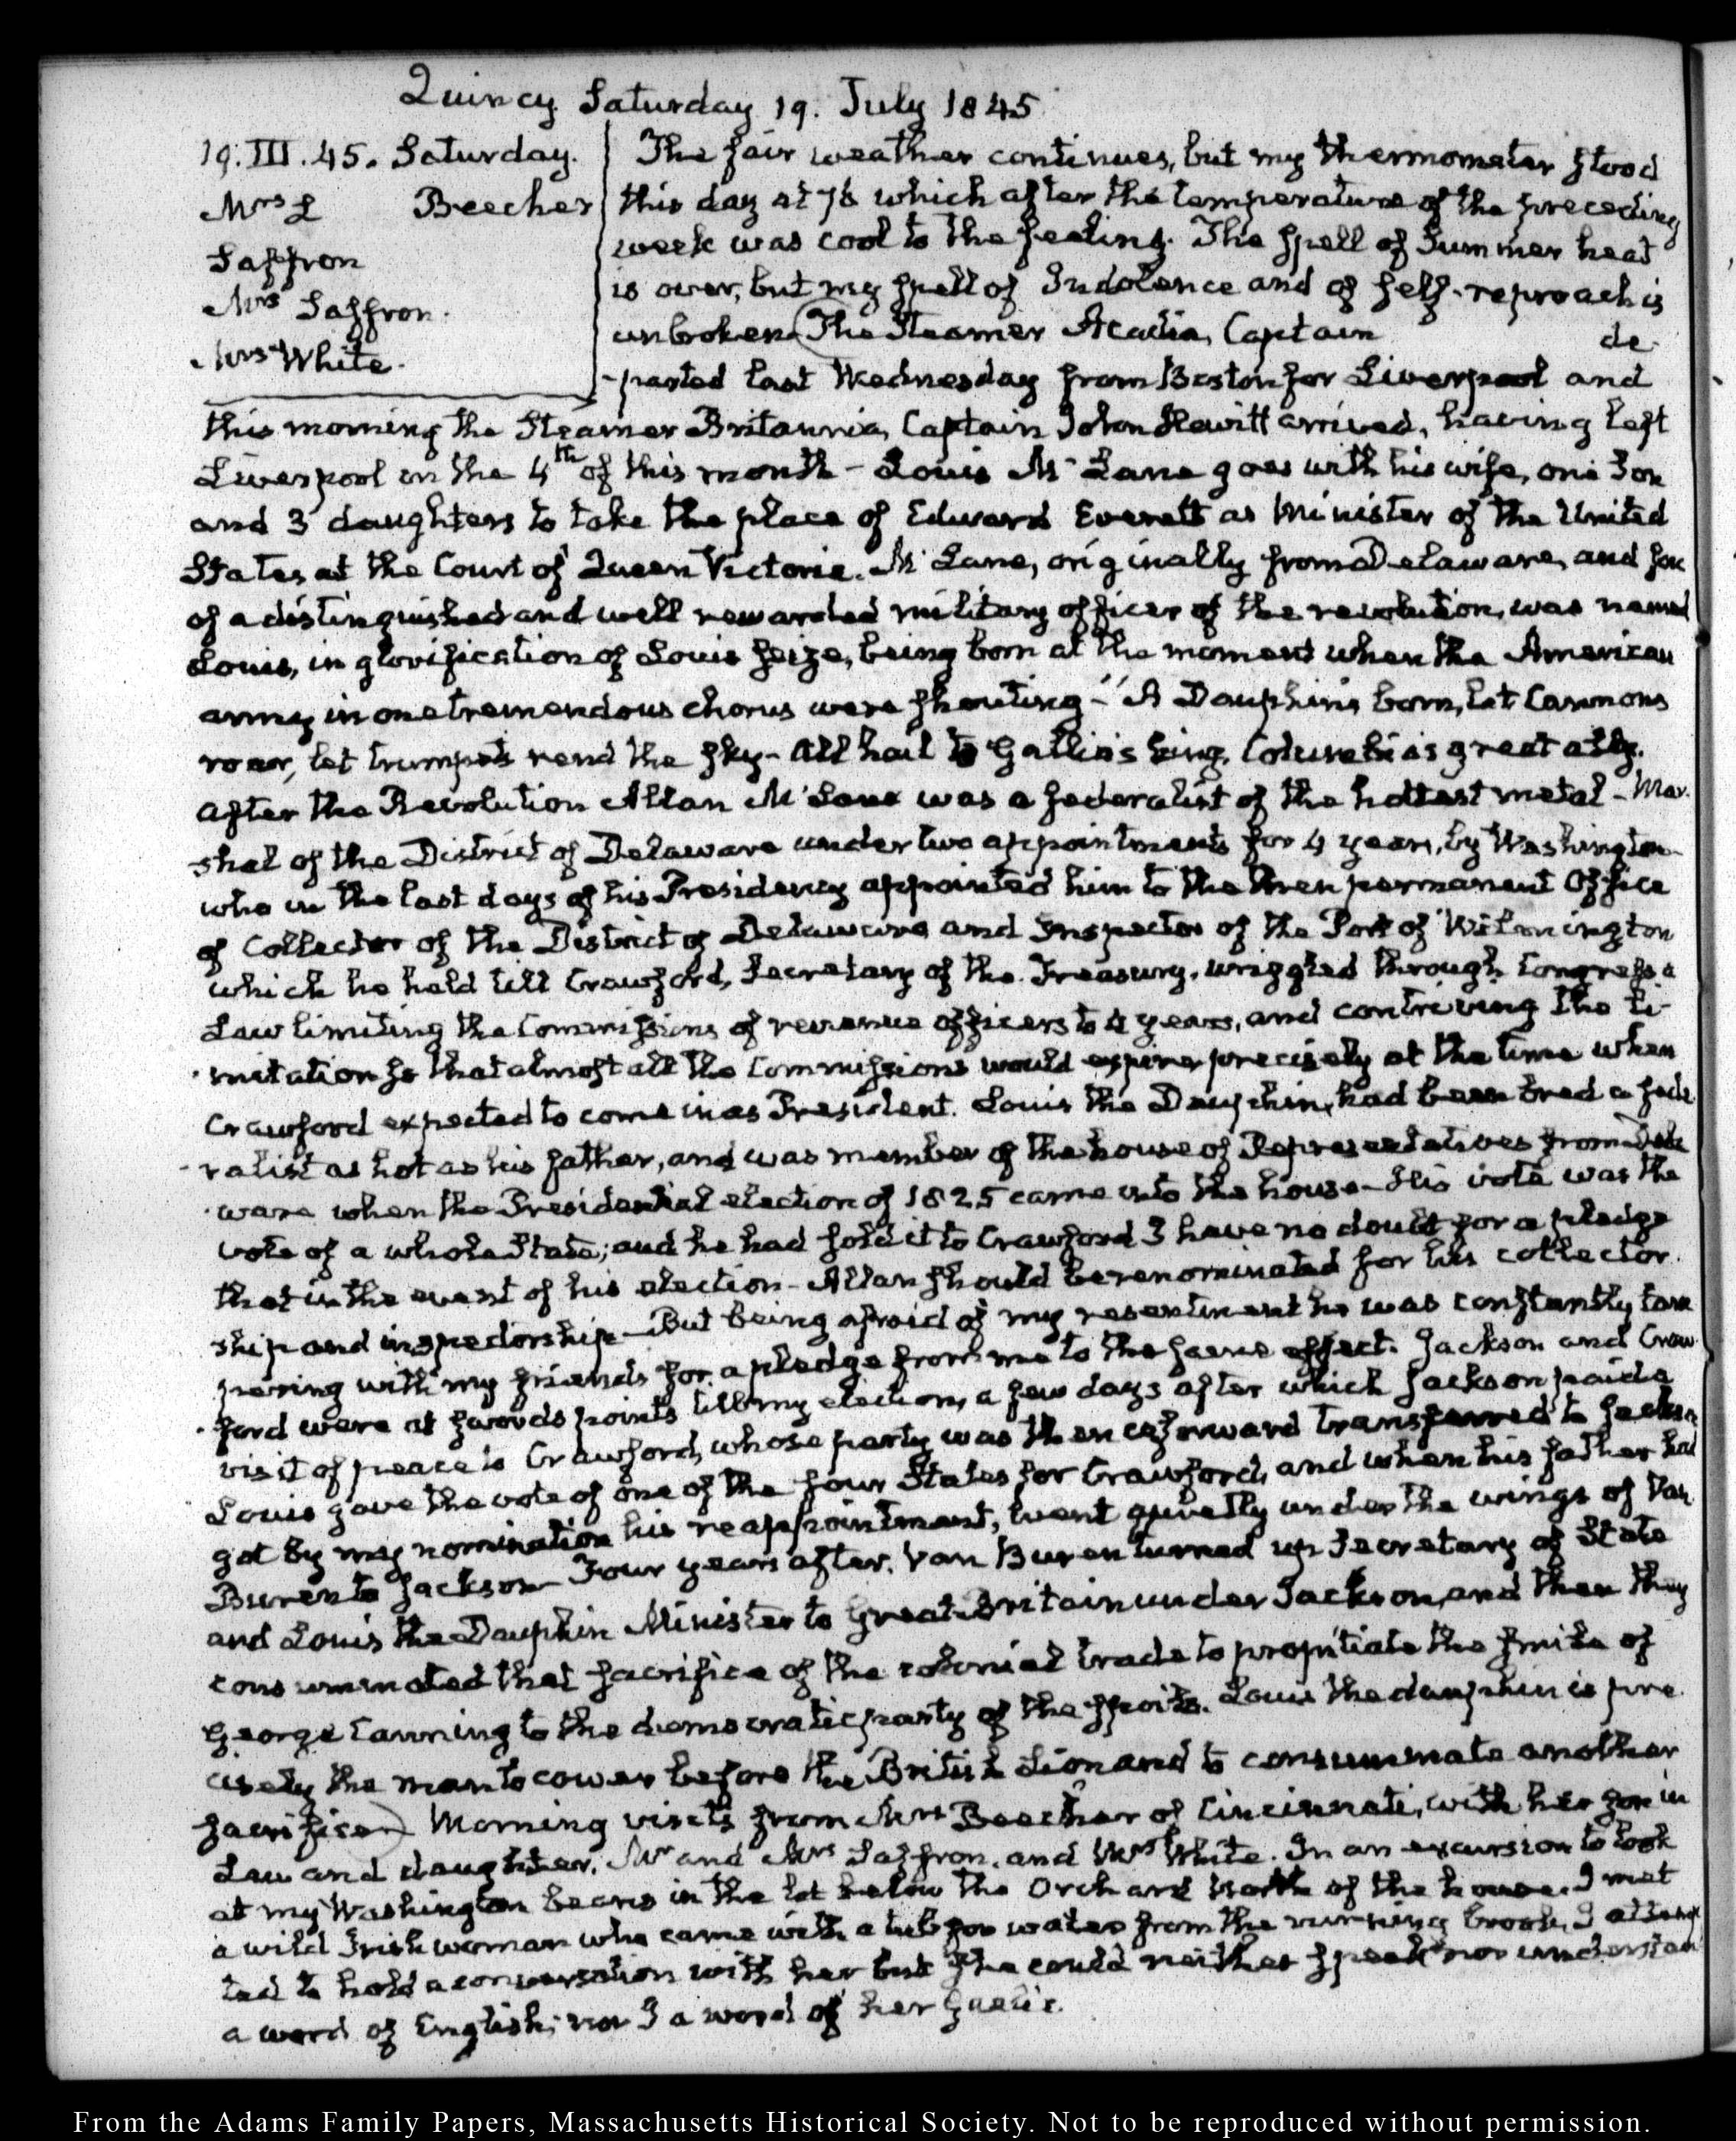 Quincy Saturday 19. July 1845
19. III. 45. Saturday.
Mrs L Beecher
Saffron
Mrs Saffron.
Mrs White.
The fair weather continues, but my thermometer stood
this day at 76 which after the temperature of the preceding
week was cool to the feeling. The spell of Summer heat
is over, but my spell of Indolence and of self-reproach is
unbroken. (The Steamer Acadia, Captain de-
-parted last Wednesday from Boston for Liverpool and
this morning the Steamer Britannia, Captain John Hewitt arrived, having left
Liverpool on the 4th of this month – Louis McLane goes with his wife, one Son
and 3 daughters to take the place of Edward Everett as Minister of the United
States at the Court of Queen Victoria. McLane, originally from Delaware, and son
of a distinguished and well rewarded military officer of the revolution, was named
Louis, in glorification of Louis Seize, being born at the moment when the American
army in one tremendous chorus were shouting – "A Dauphin's born, let Cannons
roar, let trumpets rend the sky – All hail to Gallia's king, Columbia's great ally.
After the Revolution Allan McLane was a federalist of the hottest metal – Mar-
shal of the District of Delaware under two appointments for 4 years, by Washington
who in the last days of his Presidency appointed him to the then permanent Office
of Collector of the District of Delaware and Inspector of the Port of Wilmington
which he held till Crawford, Secretary of the Treasury, wriggled through Congress a
Law limiting the Commissions of revenue officers to 4 years, and contriving the li-
-mitation so that almost all the Commissions would expire precisely at the time when
Crawford expected to come in as President. Louis the Dauphin, had been bred a fede-
-ralist as hot as his father, and was member of the house of Representatives from Dela-
-ware when the Presidential election of 1825 came into the house – His vote was the
vote of a whole State; and he had sold it to Crawford I have no doubt for a pledge
that in the event of his election – Allan should be renominated for his collector-
ship and inspectorship – But being afraid of my resentment he was constantly tam-
pering with my friends for a pledge from me to the same effect. Jackson and Craw-
-ford were at swords points till my election, a few days after which Jackson paid a
visit of peace to Crawford, whose party was thenceforward transferred to Jackson
Louis gave the vote of one of the four States for Crawford, and when his father had
got by my nomination his reappointment, went quietly under the wings of Van
Buren to Jackson – Four years after, Van Buren turned up Secretary of State
and Louis the Dauphin Minister to Great-Britain under Jackson, and then they
consummated that sacrifice of the colonial trade to propitiate the smile of
George Canning to the democratic party of the spoils. Louis the dauphin is pre-
cisely the man to cower before the British Lion and to consummate another
sacrifice.) Morning visits from Mrs Beecher of Cincinnati, with her son in
Law and daughter, Mr and Mrs Saffron, and Mrs White. In an excursion to look
at my Washington beans in the lot below the Orchard North of the house. I met
a wild Irish woman who came with a tub for water from the running brook, I attemp-
ted to hold a conversation with her but she could neither speak nor understand
a word of English; nor I a word of her Gaelic.
From the Adams Family Papers, Massachusetts Historical Society. Not to be reproduced without permission.